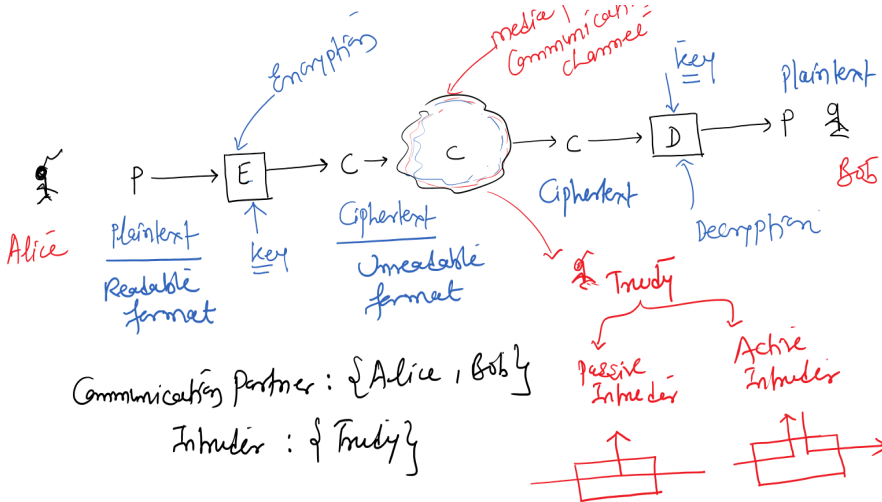 media /
Communication
channel
Encryption
key
Plaintext
P
E
C
C
C
D
P
Alice
Plaintext
Readable
format
key
Ciphertext
Unreadable
format
Ciphertext
Decryption
Bob
Trudy
Passive
Intruder
Active
Intruder
Communication Partner : {Alice, Bob}
Intruder : {Trudy}